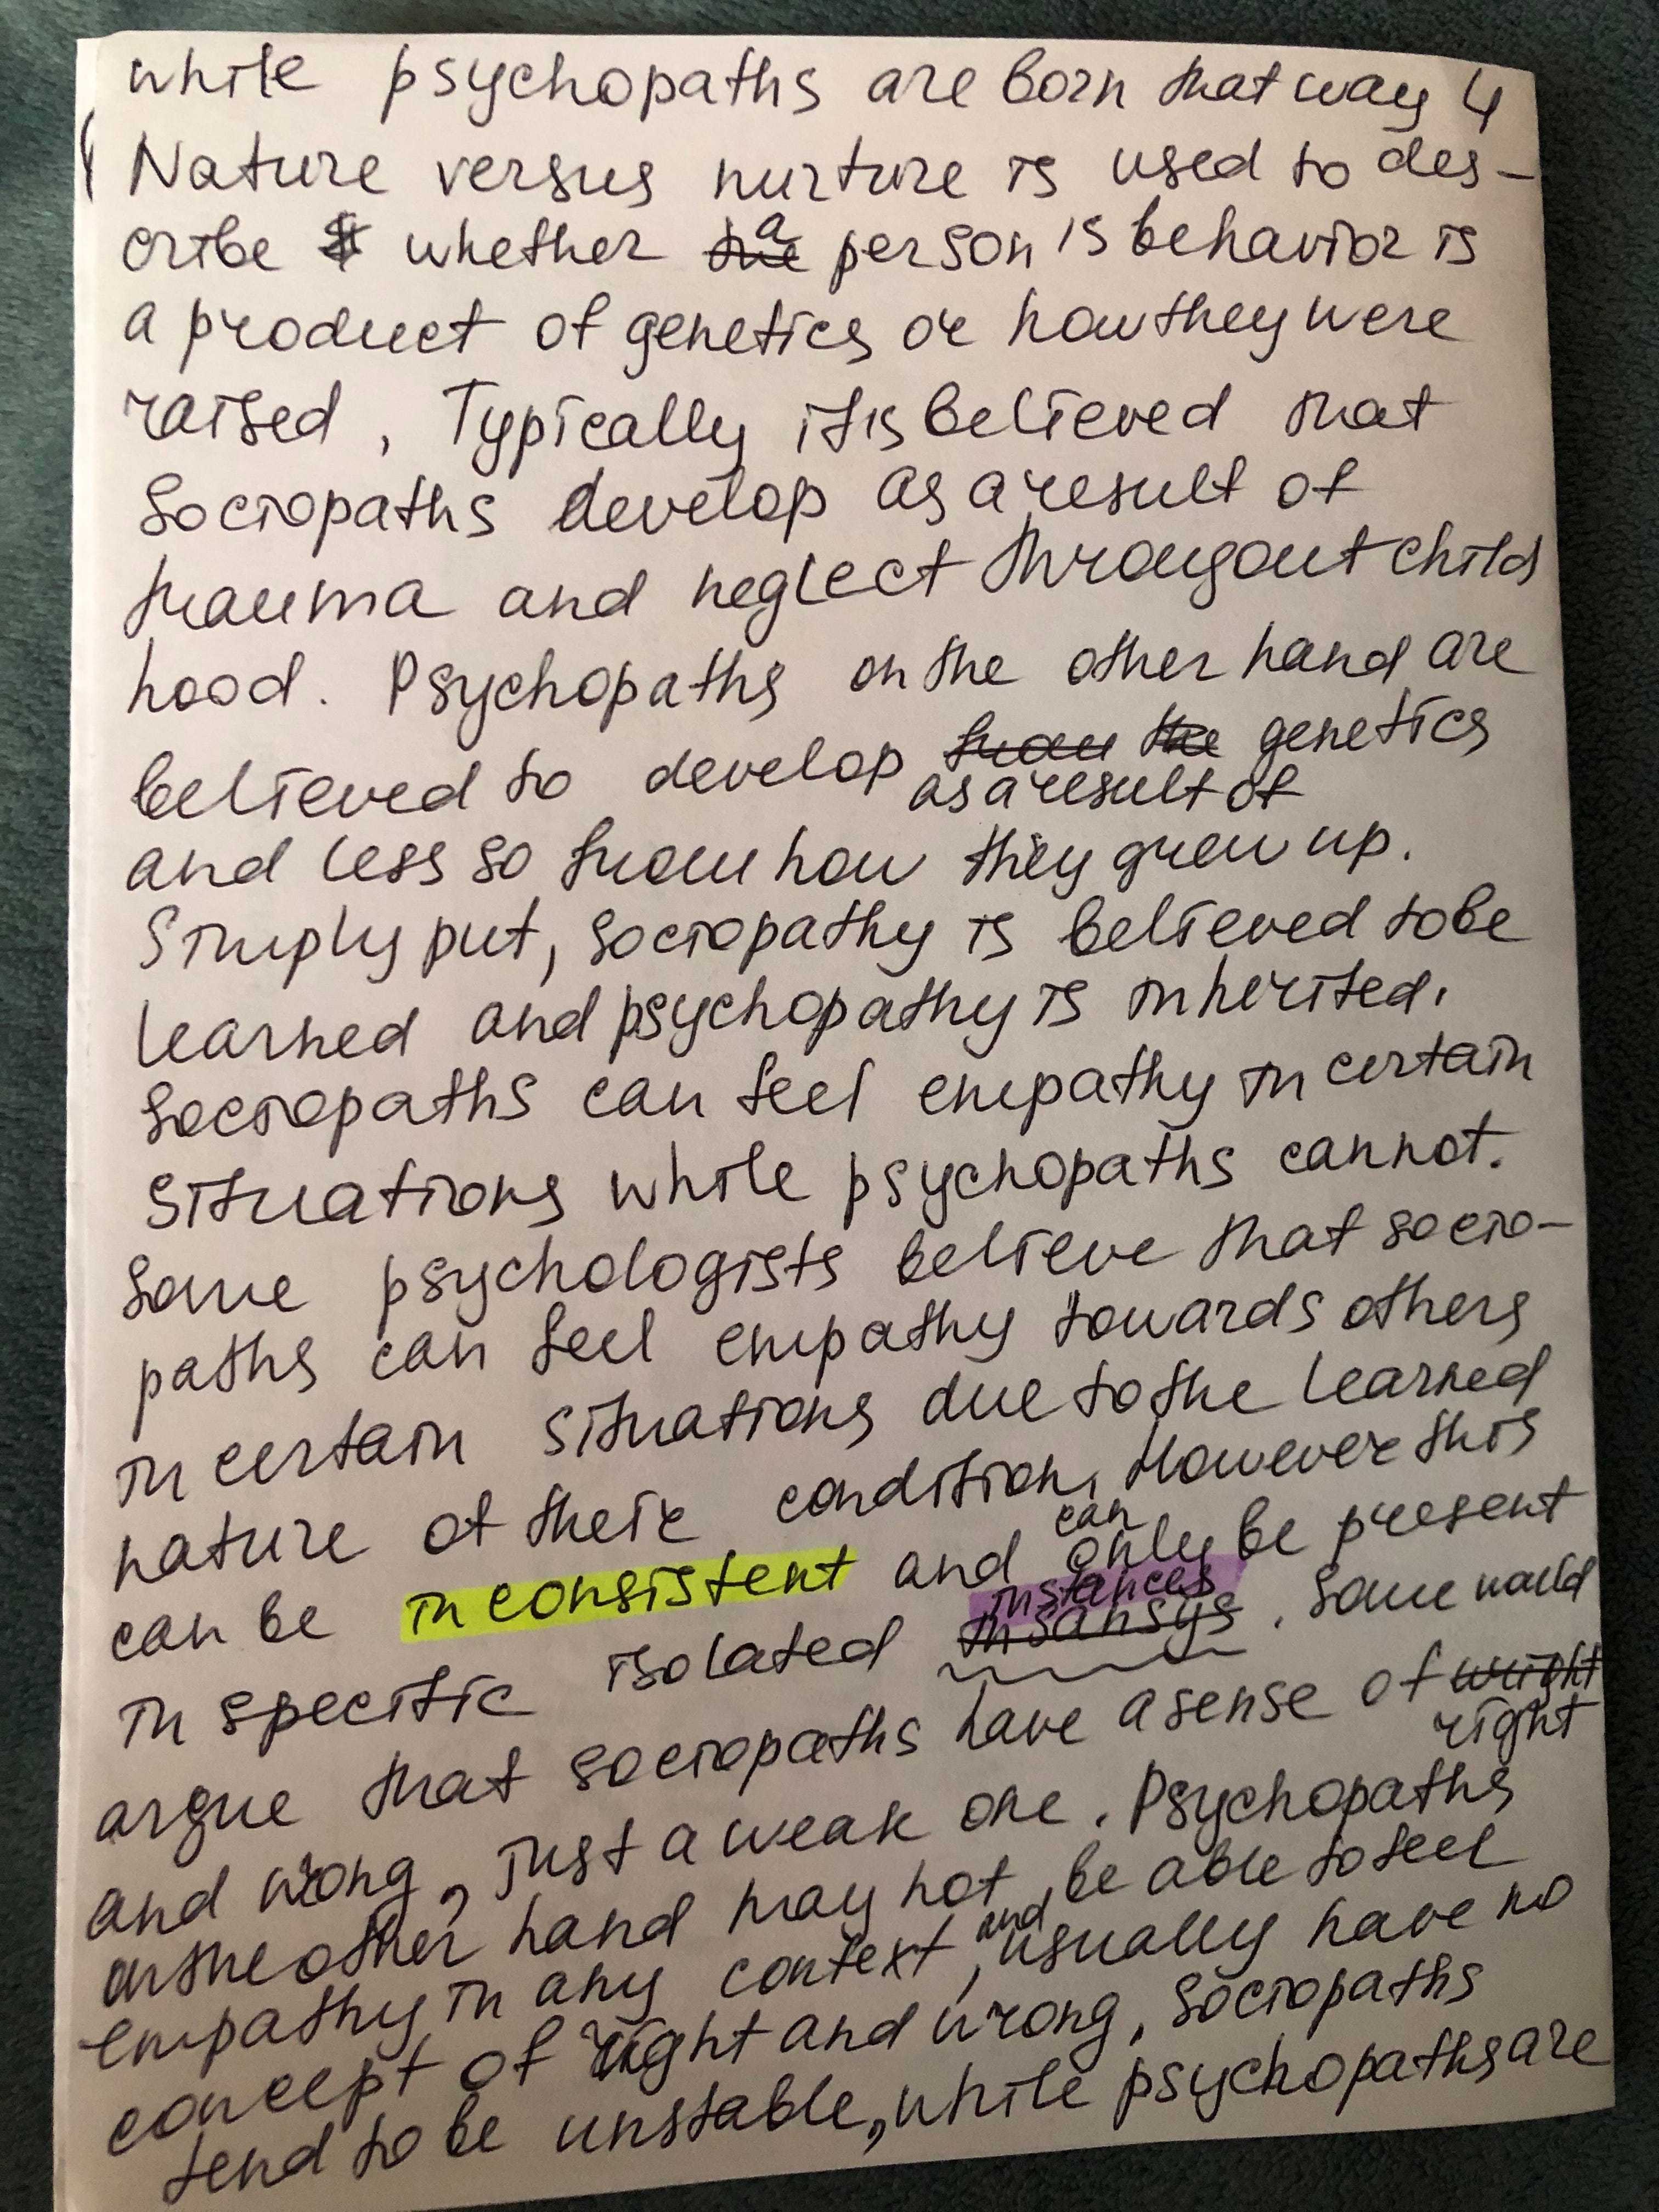 while psychopaths are born that way 4
Nature versus nurture is used to des-
cribe whether the a person's behavior is
a product of genetics or how they were
raised, Typically it is believed that
Sociopaths develop as a result of
trauma and neglect througout child
hood. Psychopaths on the other hand are
believed to develop from the genetics
as a result of
and less so from how they grew up.
Simply put, sociopathy is believed to be
learned and psychopathy is inherited.
Sociopaths can feel empathy in certain
situations while psychopaths cannot.
Some psychologists believe that socio-
paths can feel empathy towards others
in certain situations due to the learned
nature of their condition, However this
can
can be inconsistent and only be present
instances
in specific isolated insansys. Some would
argue that sociopaths have a sense of wright
right
and wrong, just a weak one. Psychopaths
on the other hand may not be able to feel
empathy in any context, and usually have no
concept of right and wrong, Sociopaths
tend to be unstable, while psychopaths are